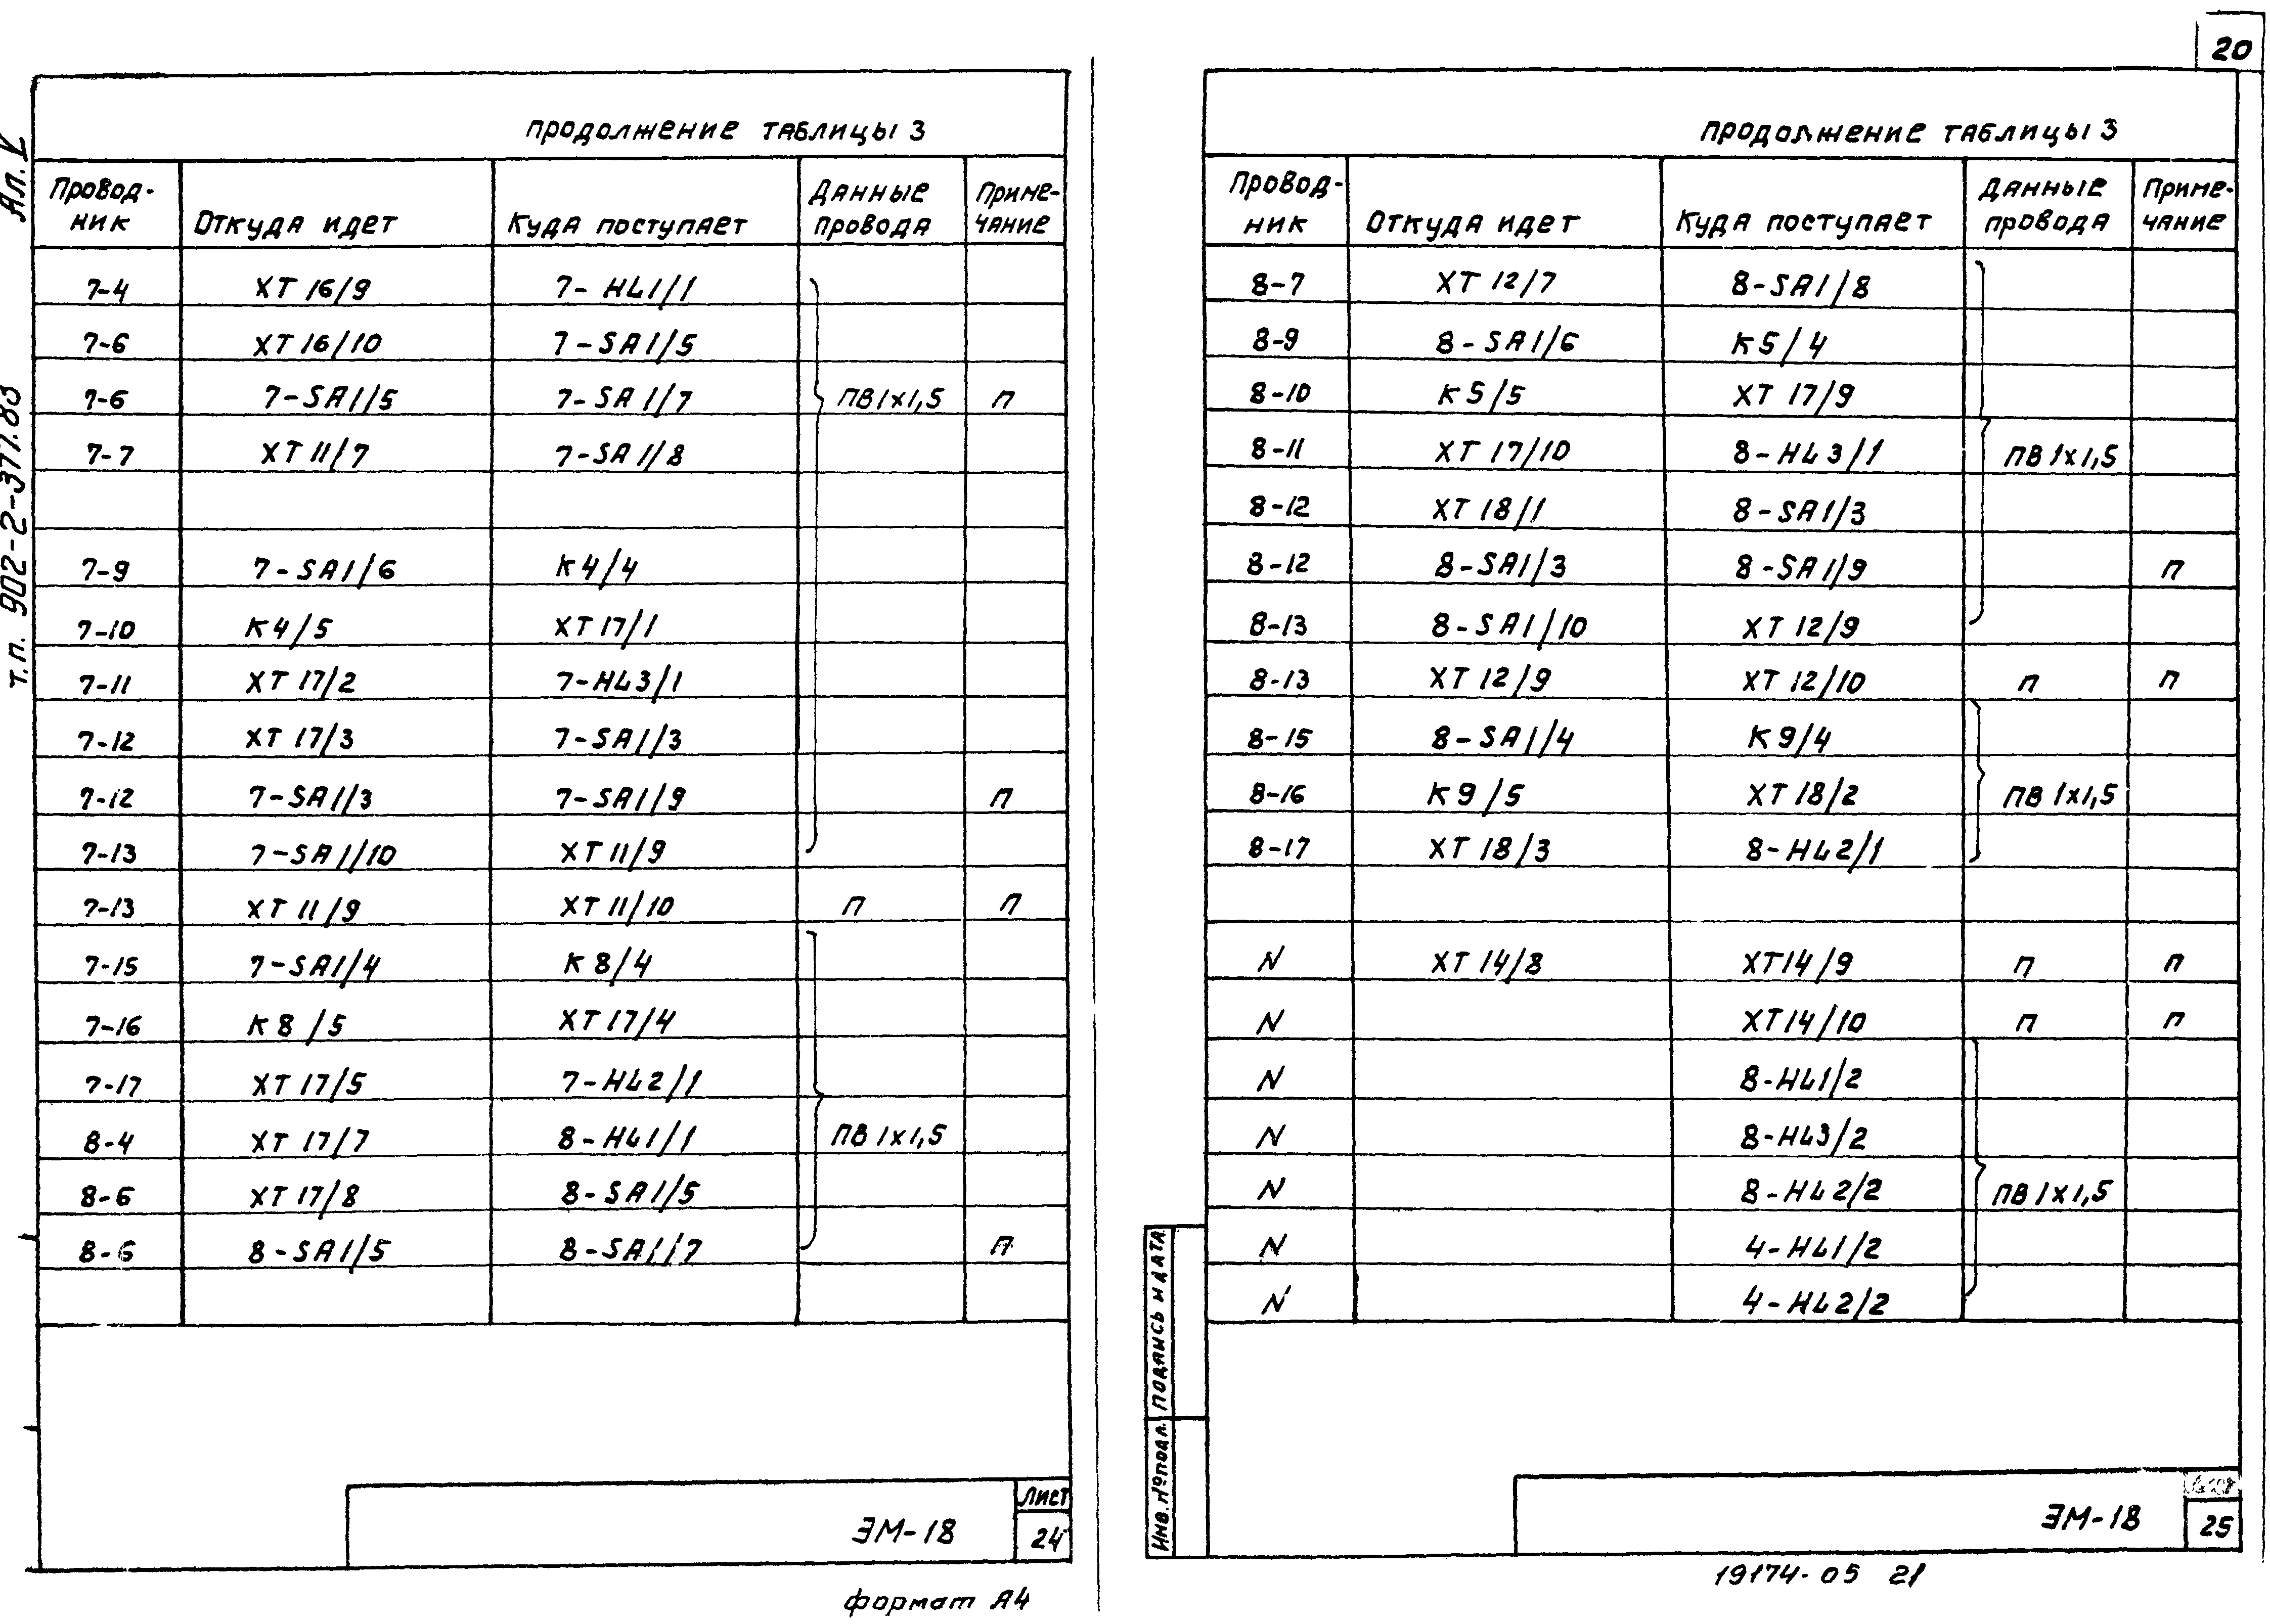 20
Ал. V
т.п. 902-2-377.83
продолжение таблицы 3
Провод-ник | Откуда идет | Куда поступает | Данные провода | Приме-чание
7-4 | ХТ 16/9 | 7-HL1/1
7-6 | ХТ 16/10 | 7-SA1/5
7-6 | 7-SA1/5 | 7-SA1/7 | ПВ 1х1,5 | п
7-7 | ХТ 11/7 | 7-SA1/8
7-9 | 7-SA1/6 | К4/4
7-10 | К4/5 | ХТ 17/1
7-11 | ХТ 17/2 | 7-HL3/1
7-12 | ХТ 17/3 | 7-SA1/3
7-12 | 7-SA1/3 | 7-SA1/9 | п
7-13 | 7-SA1/10 | ХТ 11/9
7-13 | ХТ 11/9 | ХТ 11/10 | п | п
7-15 | 7-SA1/4 | К8/4
7-16 | К8/5 | ХТ 17/4
7-17 | ХТ 17/5 | 7-HL2/1
8-4 | ХТ 17/7 | 8-HL1/1 | ПВ 1х1,5
8-6 | ХТ 17/8 | 8-SA1/5
8-6 | 8-SA1/5 | 8-SA1/7 | п
ЭМ-18
Лист
24
формат А4
продолжение таблицы 3
Провод-ник | Откуда идет | Куда поступает | Данные провода | Приме-чание
8-7 | ХТ 12/7 | 8-SA1/8
8-9 | 8-SA1/6 | К5/4
8-10 | К5/5 | ХТ 17/9
8-11 | ХТ 17/10 | 8-HL3/1 | ПВ 1х1,5
8-12 | ХТ 18/1 | 8-SA1/3
8-12 | 8-SA1/3 | 8-SA1/9 | п
8-13 | 8-SA1/10 | ХТ 12/9
8-13 | ХТ 12/9 | ХТ 12/10 | п | п
8-15 | 8-SA1/4 | К9/4
8-16 | К9/5 | ХТ 18/2 | ПВ 1х1,5
8-17 | ХТ 18/3 | 8-HL2/1
N | ХТ 14/8 | ХТ14/9 | п | п
N | ХТ14/10 | п | п
N | 8-HL1/2
N | 8-HL3/2
N | 8-HL2/2 | ПВ 1х1,5
N | 4-HL1/2
N | 4-HL2/2
Инв. № подл. Подпись и дата
ЭМ-18
Лист
25
19174-05 21